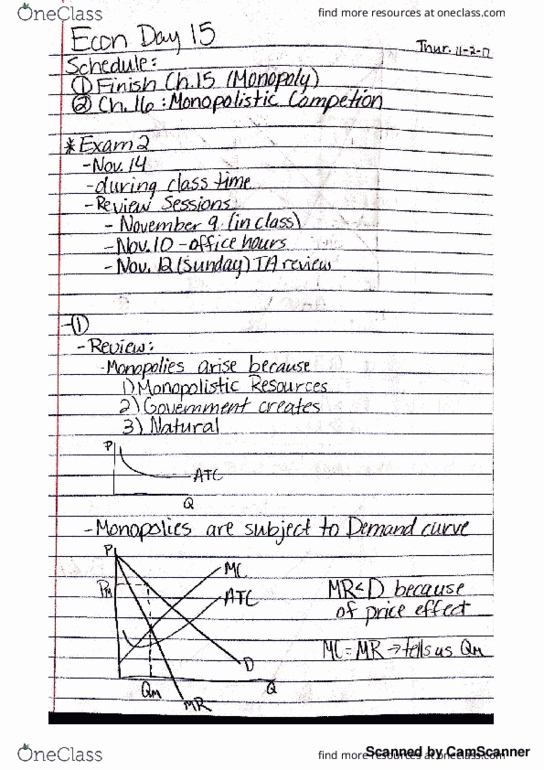 OneClass
find more resources at oneclass.com
Econ Day 15
Thur. 11-2-17
Schedule:
① Finish Ch.15 (Monopoly)
② Ch.16: Monopolistic Competion
* Exam 2
- Nov. 14
- during class time
- Review Sessions
- November 9 (in class)
- Nov. 10 - office hours
- Nov. 12 (Sunday) TA review
- ①
- Review:
- Monopolies arise because
1) Monopolistic Resources
2) Government creates
3) Natural
P
ATC
Q
- Monopolies are subject to Demand curve
P
MC
PM
ATC
MR<D because
of price effect
MC=MR → tells us QM
D
QM
Q
MR
OneClass
find more resources at oneclass.com
Scanned by CamScanner